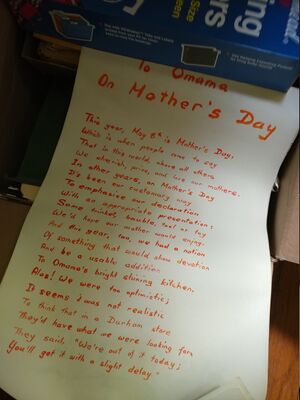 To Omama
On Mother's Day
This year, May 8th is Mother's Day,
Which is when people come to say
That in this world, above all others
We cherish, prize, and love our mothers.
In other years, on Mother's Day
It's been our customary way
To emphasize our declaration
With an appropriate presentation:
Some trinket, bauble, tool or toy
We'd have our mother would enjoy.
And this year, too, we had a notion
Of something that would show devotion
And be a usable addition
To Omama's bright shining kitchen.
Alas! We were too optimistic;
It seems it was not realistic
To think that in a Durham store
They'd have what we were looking for.
They said, "We're out of it today;
You'll get it with a slight delay."